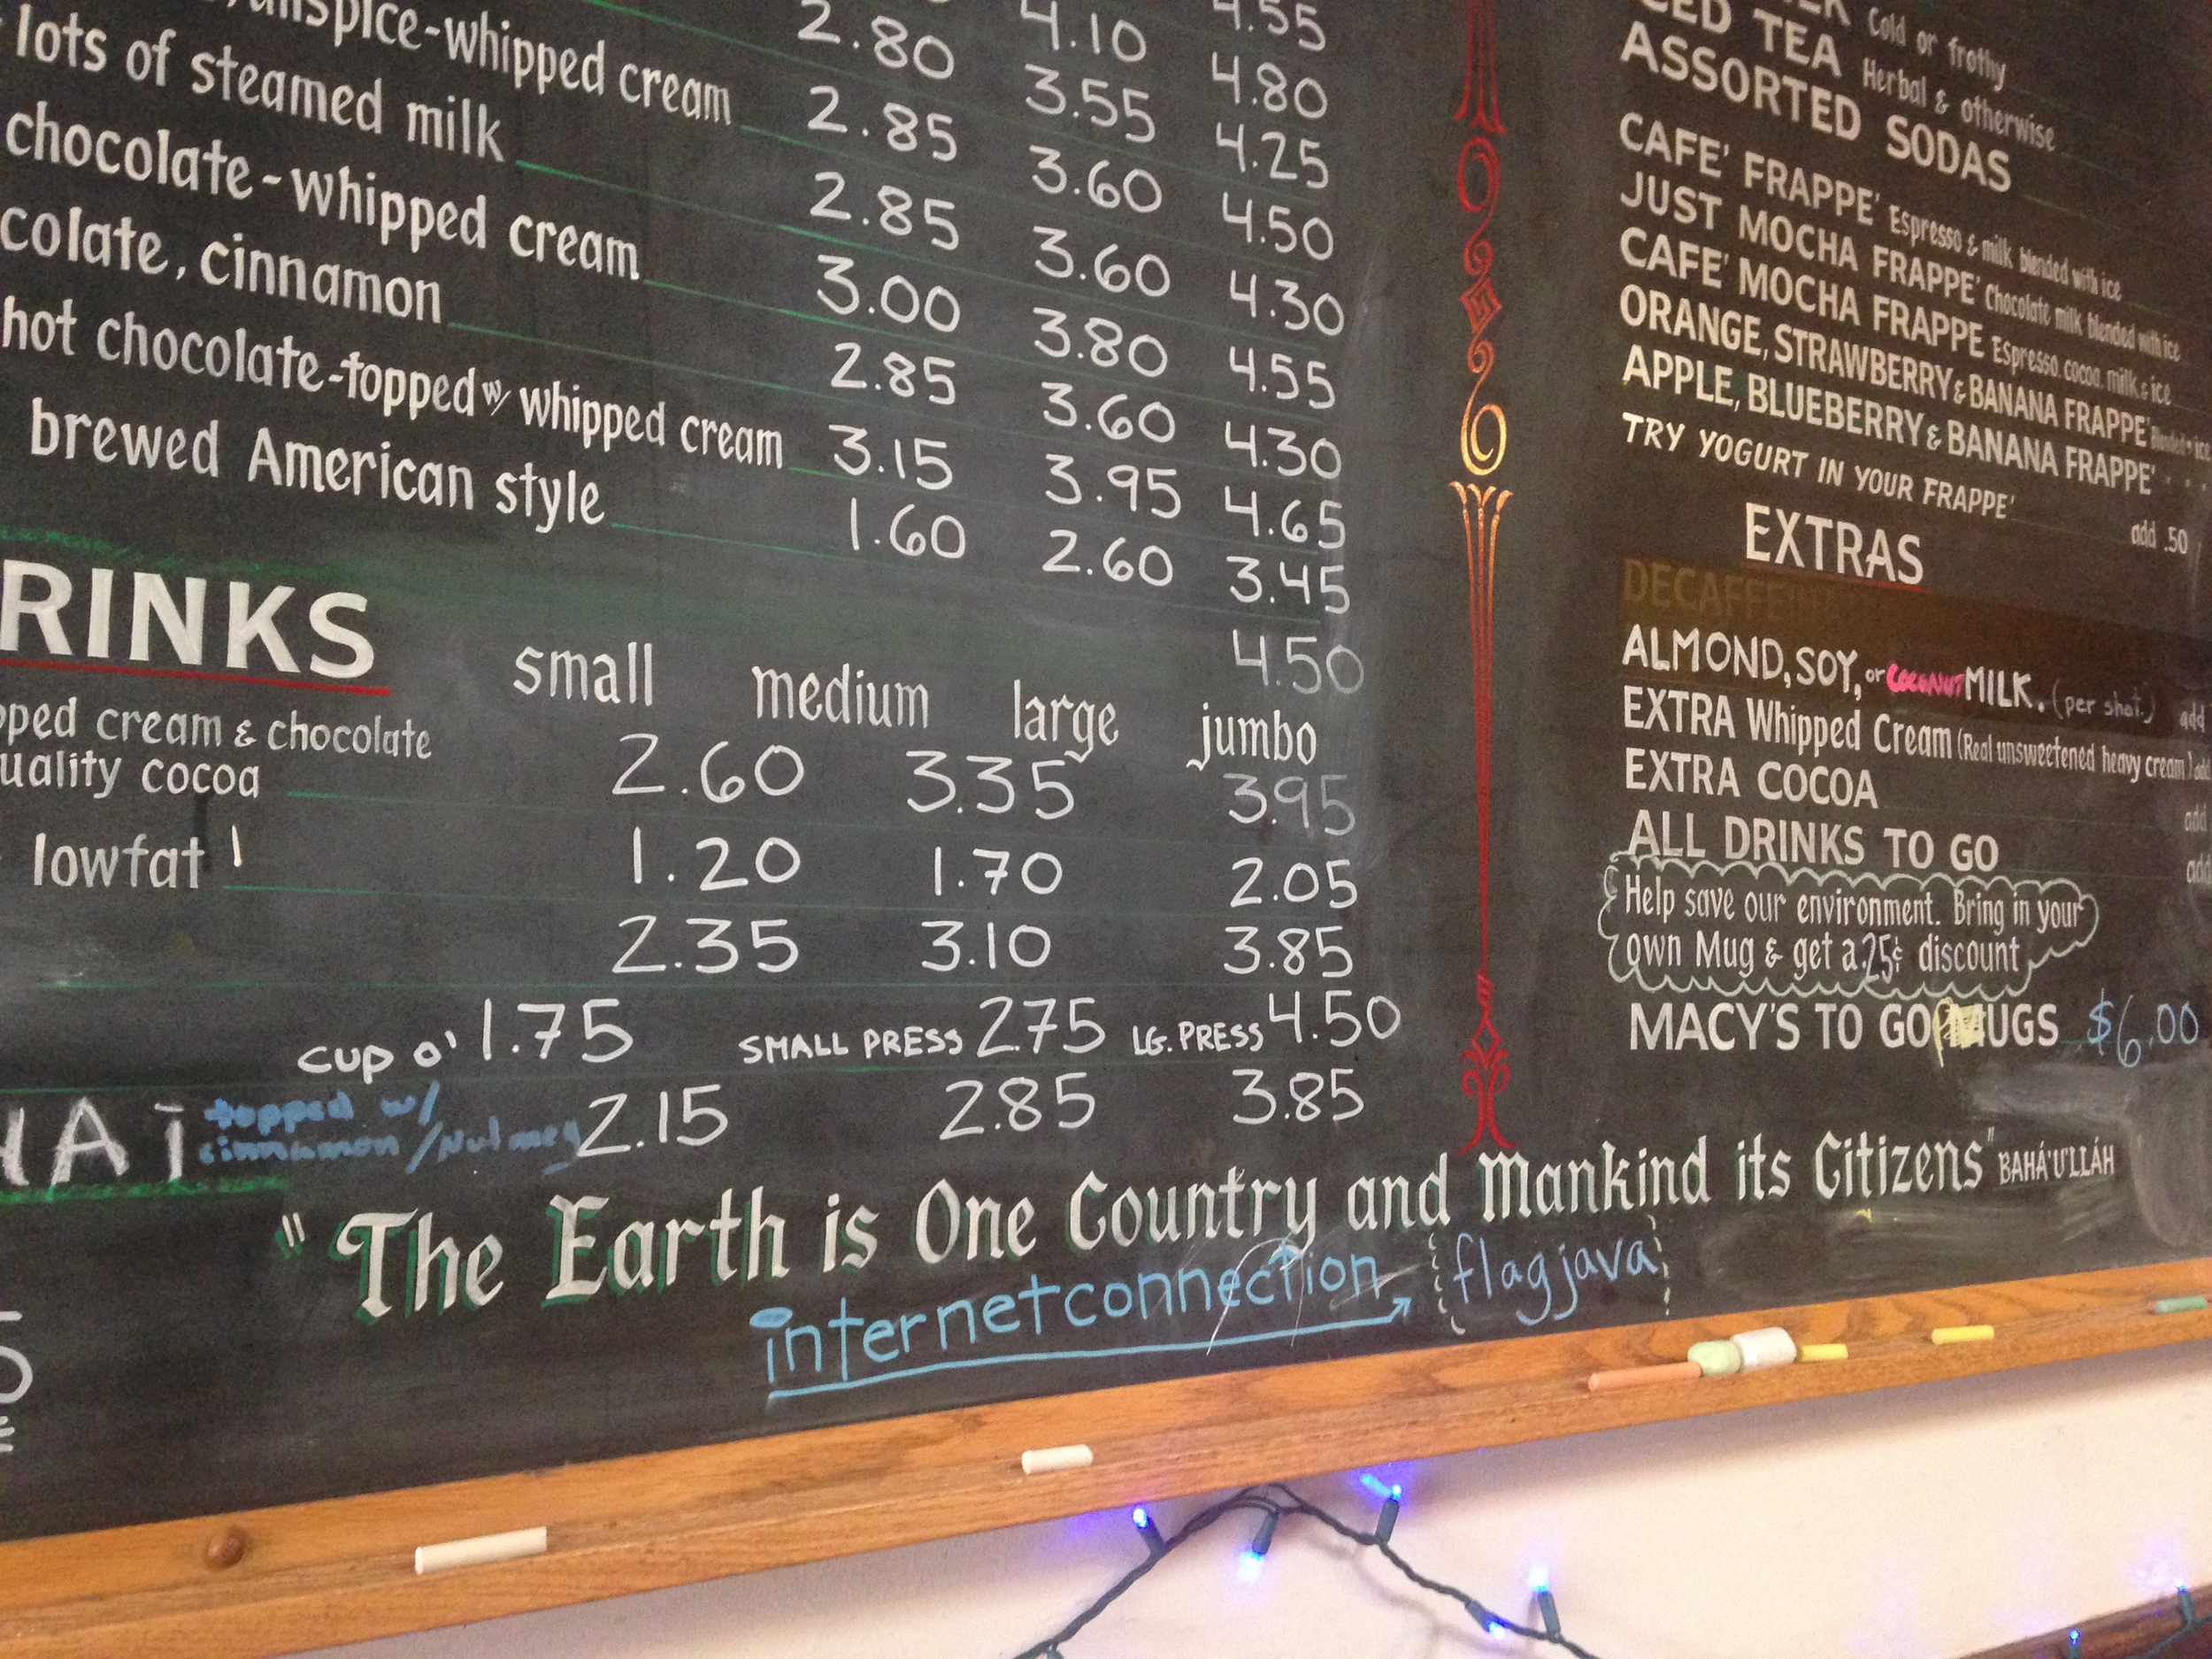 4.55
2.80 4.10 4.80
spice-whipped cream 2.85 3.55 4.25
lots of steamed milk 2.85 3.60 4.50
chocolate-whipped cream 3.00 3.60 4.30
colate, cinnamon 2.85 3.80 4.55
hot chocolate-topped w/ whipped cream 3.15 3.60 4.30
brewed American style 1.60 3.95 4.65
2.60 3.45
4.50
RINKS
small medium large jumbo
pped cream & chocolate
uality cocoa 2.60 3.35 3.95
lowfat 1.20 1.70 2.05
2.35 3.10 3.85
cup o' 1.75 SMALL PRESS 2.75 LG. PRESS 4.50
HAi topped w/
cinnamon/Nutmeg 2.15 2.85 3.85
Cold or frothy
CED TEA Herbal & otherwise
ASSORTED SODAS
CAFE' FRAPPE' Espresso & milk blended with ice
JUST MOCHA FRAPPE' Chocolate milk blended with ice
CAFE' MOCHA FRAPPE Espresso, cocoa, milk & ice
ORANGE, STRAWBERRY & BANANA FRAPPE' Blended w ice
APPLE, BLUEBERRY & BANANA FRAPPE'
TRY YOGURT IN YOUR FRAPPE' add .50
EXTRAS
ALMOND, SOY, or COCONUT MILK. (per shot.) add
EXTRA Whipped Cream (Real unsweetened heavy cream) add
EXTRA COCOA add
ALL DRINKS TO GO add
Help save our environment. Bring in your
own Mug & get a .25¢ discount
MACY'S TO GO MUGS $6.00
"The Earth is One Country and Mankind its Citizens" BAHÁ'U'LLÁH
internetconnection flagjava